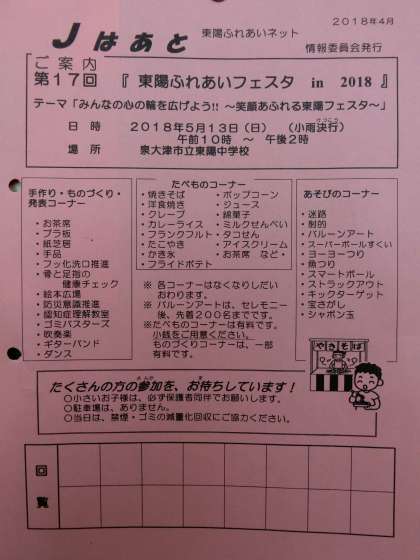 2018年4月
Jはあと 東陽ふれあいネット
情報委員会発行
ご案内
第17回 『 東陽ふれあいフェスタ in 2018 』
テーマ「みんなの心の輪を広げよう!! ～笑顔あふれる東陽フェスタ～」
日 時 2018年5月13日（日） （小雨決行）
午前10時 ～ 午後2時
場 所 泉大津市立東陽中学校
手作り・ものづくり・
発表コーナー
・お茶席
・プラ板
・紙芝居
・手品
・フッ化洗口推進
・骨と足指の
健康チェック
・絵本広場
・防災意識推進
・認知症理解教室
・ゴミバスターズ
・吹奏楽
・ギターバンド
・ダンス
たべものコーナー
・焼きそば ・ポップコーン
・洋食焼き ・ジュース
・クレープ ・綿菓子
・カレーライス ・ミルクせんべい
・フランクフルト ・タコせん
・たこやき ・アイスクリーム
・かき氷 ・お茶席 など
・フライドポテト
※ 各コーナーはなくなりしだい
おわります。
※ バルーンアートは、セレモニー
後、先着200名までです。
※たべものコーナーは有料です。
小銭をご用意ください。
ものづくりコーナーは、一部
有料です。
あそびのコーナー
・迷路
・射的
・バルーンアート
・スーパーボールすくい
・ヨーヨーつり
・魚つり
・スマートボール
・ストラックアウト
・キックターゲット
・宝さがし
・シャボン玉
やきそば
たくさんの方の参加を、お待ちしています！
○小さいお子様は、必ず保護者同伴でお願いします。
○駐車場は、ありません。
○当日は、禁煙・ゴミの減量化回収にご協力ください。
回覧